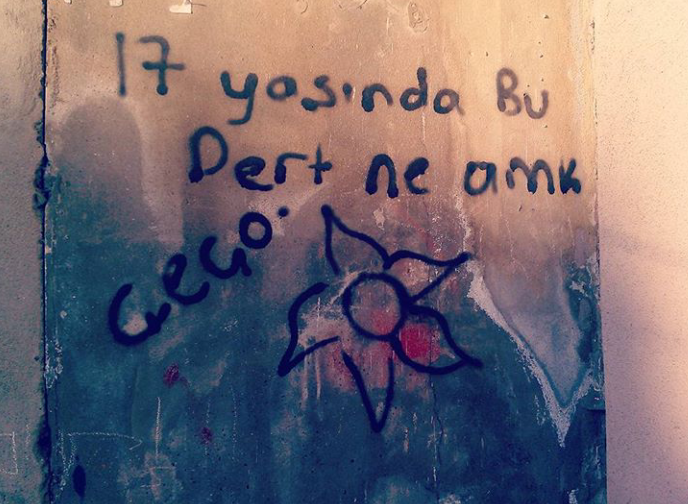 17 yasında Bu
Dert ne amk
GeGO